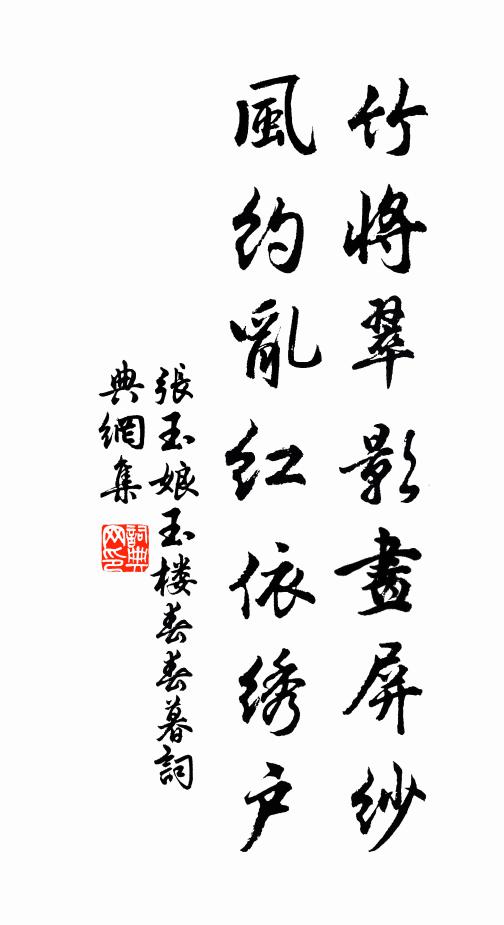 竹將翠影畫屏紗
風約亂紅依绣户
張玉娘玉楼春春暮詞
典網集
詞典網印